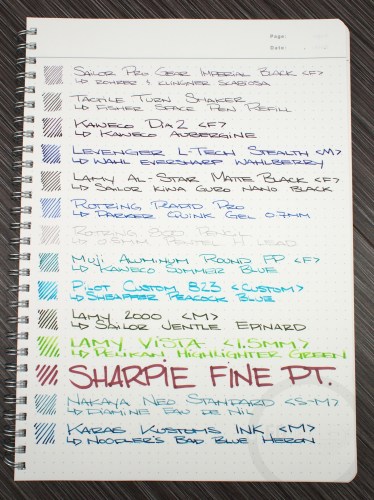 Page:
Date:
Sailor Pro Gear Imperial Black <F>
↳ Rohrer & Klingner Scabiosa
Tactile Turn Shaker
↳ Fisher Space Pen Refill
Kaweco Dia2 <F>
↳ Kaweco Aubergine
Levenger L-Tech Stealth <M>
↳ Wahl Eversharp Wahlberry
Lamy Al-Star Matte Black <F>
↳ Sailor Kiwa Guro Nano Black
Rotring Rapid Pro
↳ Parker Quink Gel 0.7mm
Rotring 800 Pencil
↳ 0.5mm Pentel H Lead
Muji Aluminum Round FP <F>
↳ Kaweco Summer Blue
Pilot Custom 823 <Custom>
↳ Sheaffer Peacock Blue
Lamy 2000 <M>
↳ Sailor Jentle Epinard
Lamy Vista <1.5mm>
↳ Pelikan Highlighter Green
Sharpie Fine Pt.
Nakaya Neo Standard <S-M>
↳ Diamine Eau de Nil
Karas Kustoms Ink <M>
↳ Noodler's Bad Blue Heron